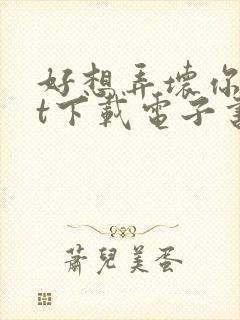 好想弄壞你
t下載電子書
蕭兒美蛋